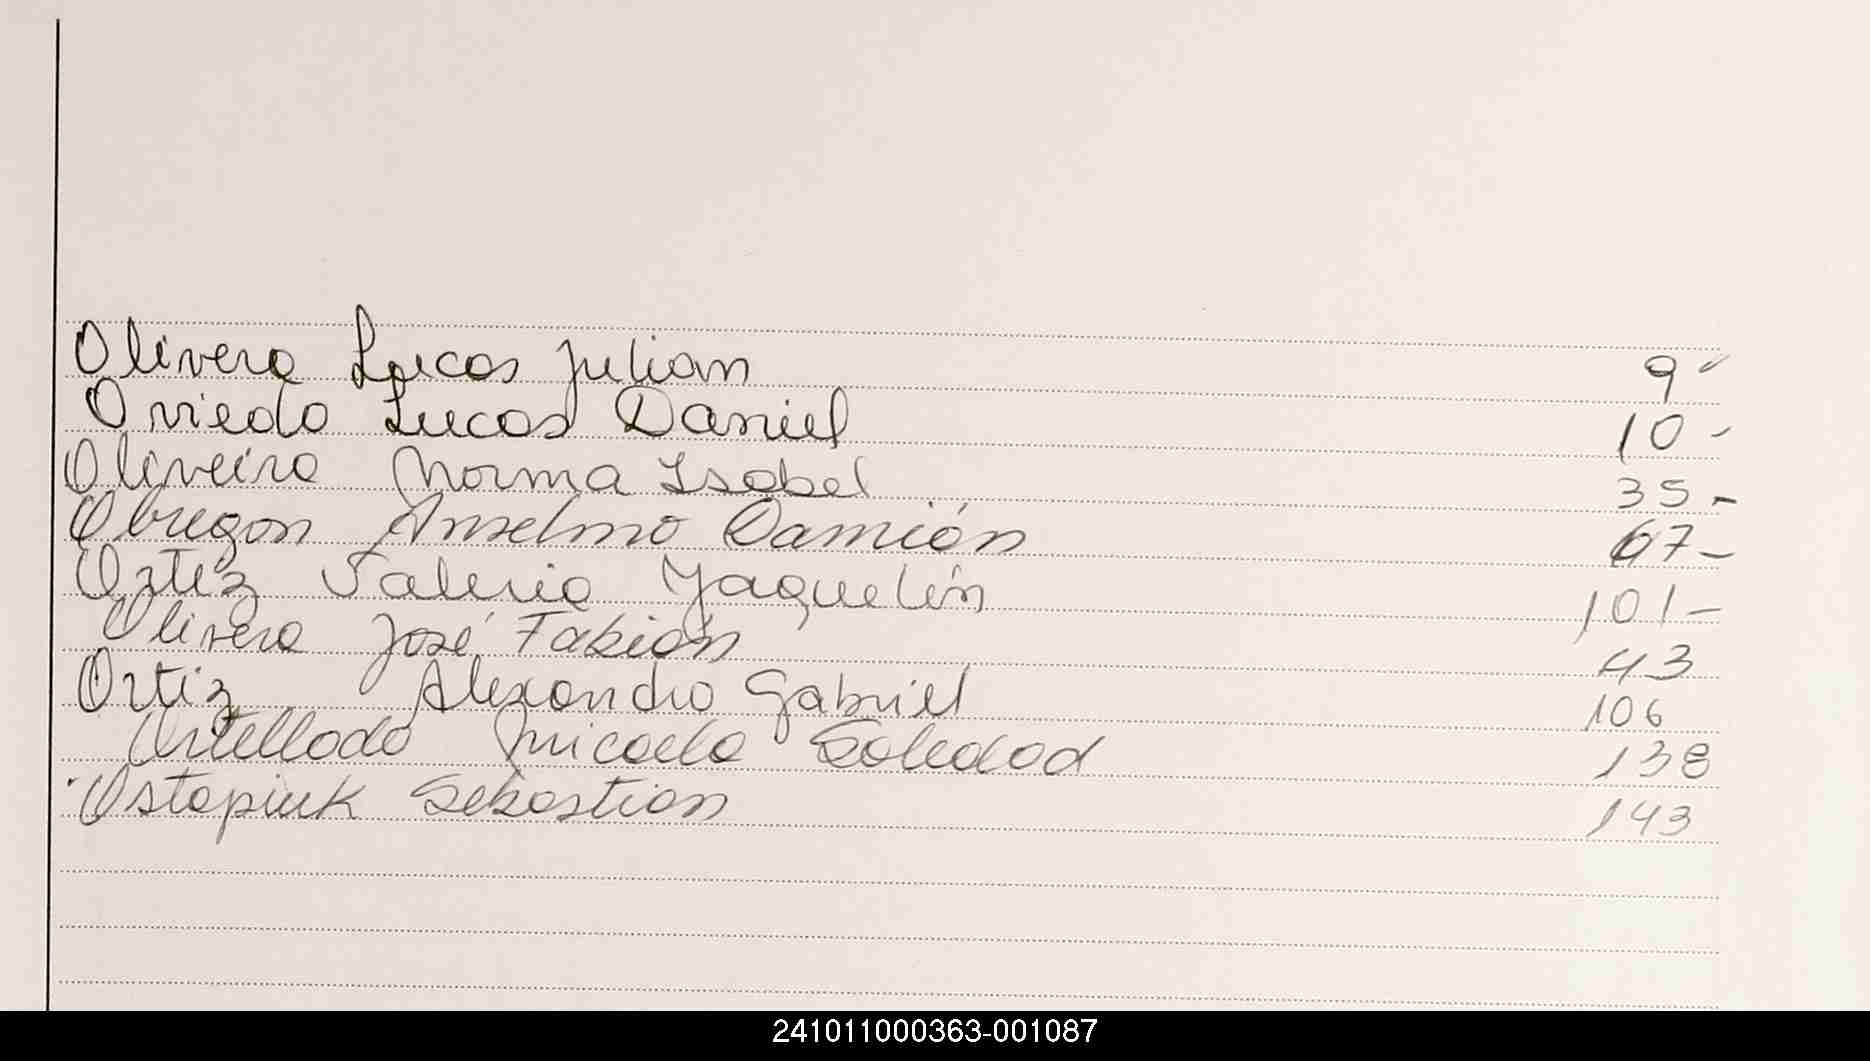 Olivera Lucas Julian 9 -
Oviedo Lucas Daniel 10 -
Oliveira Norma Isabel 35 -
Obregon Anselmo Damión 67 -
Ortiz Valeria Yaquelin 101 -
Olivera José Fabián 43
Ortiz Alexandro Gabriel 106
Ortellado Micaela Soledad 138
Ostapiuk Sebastian 143
241011000363-001087